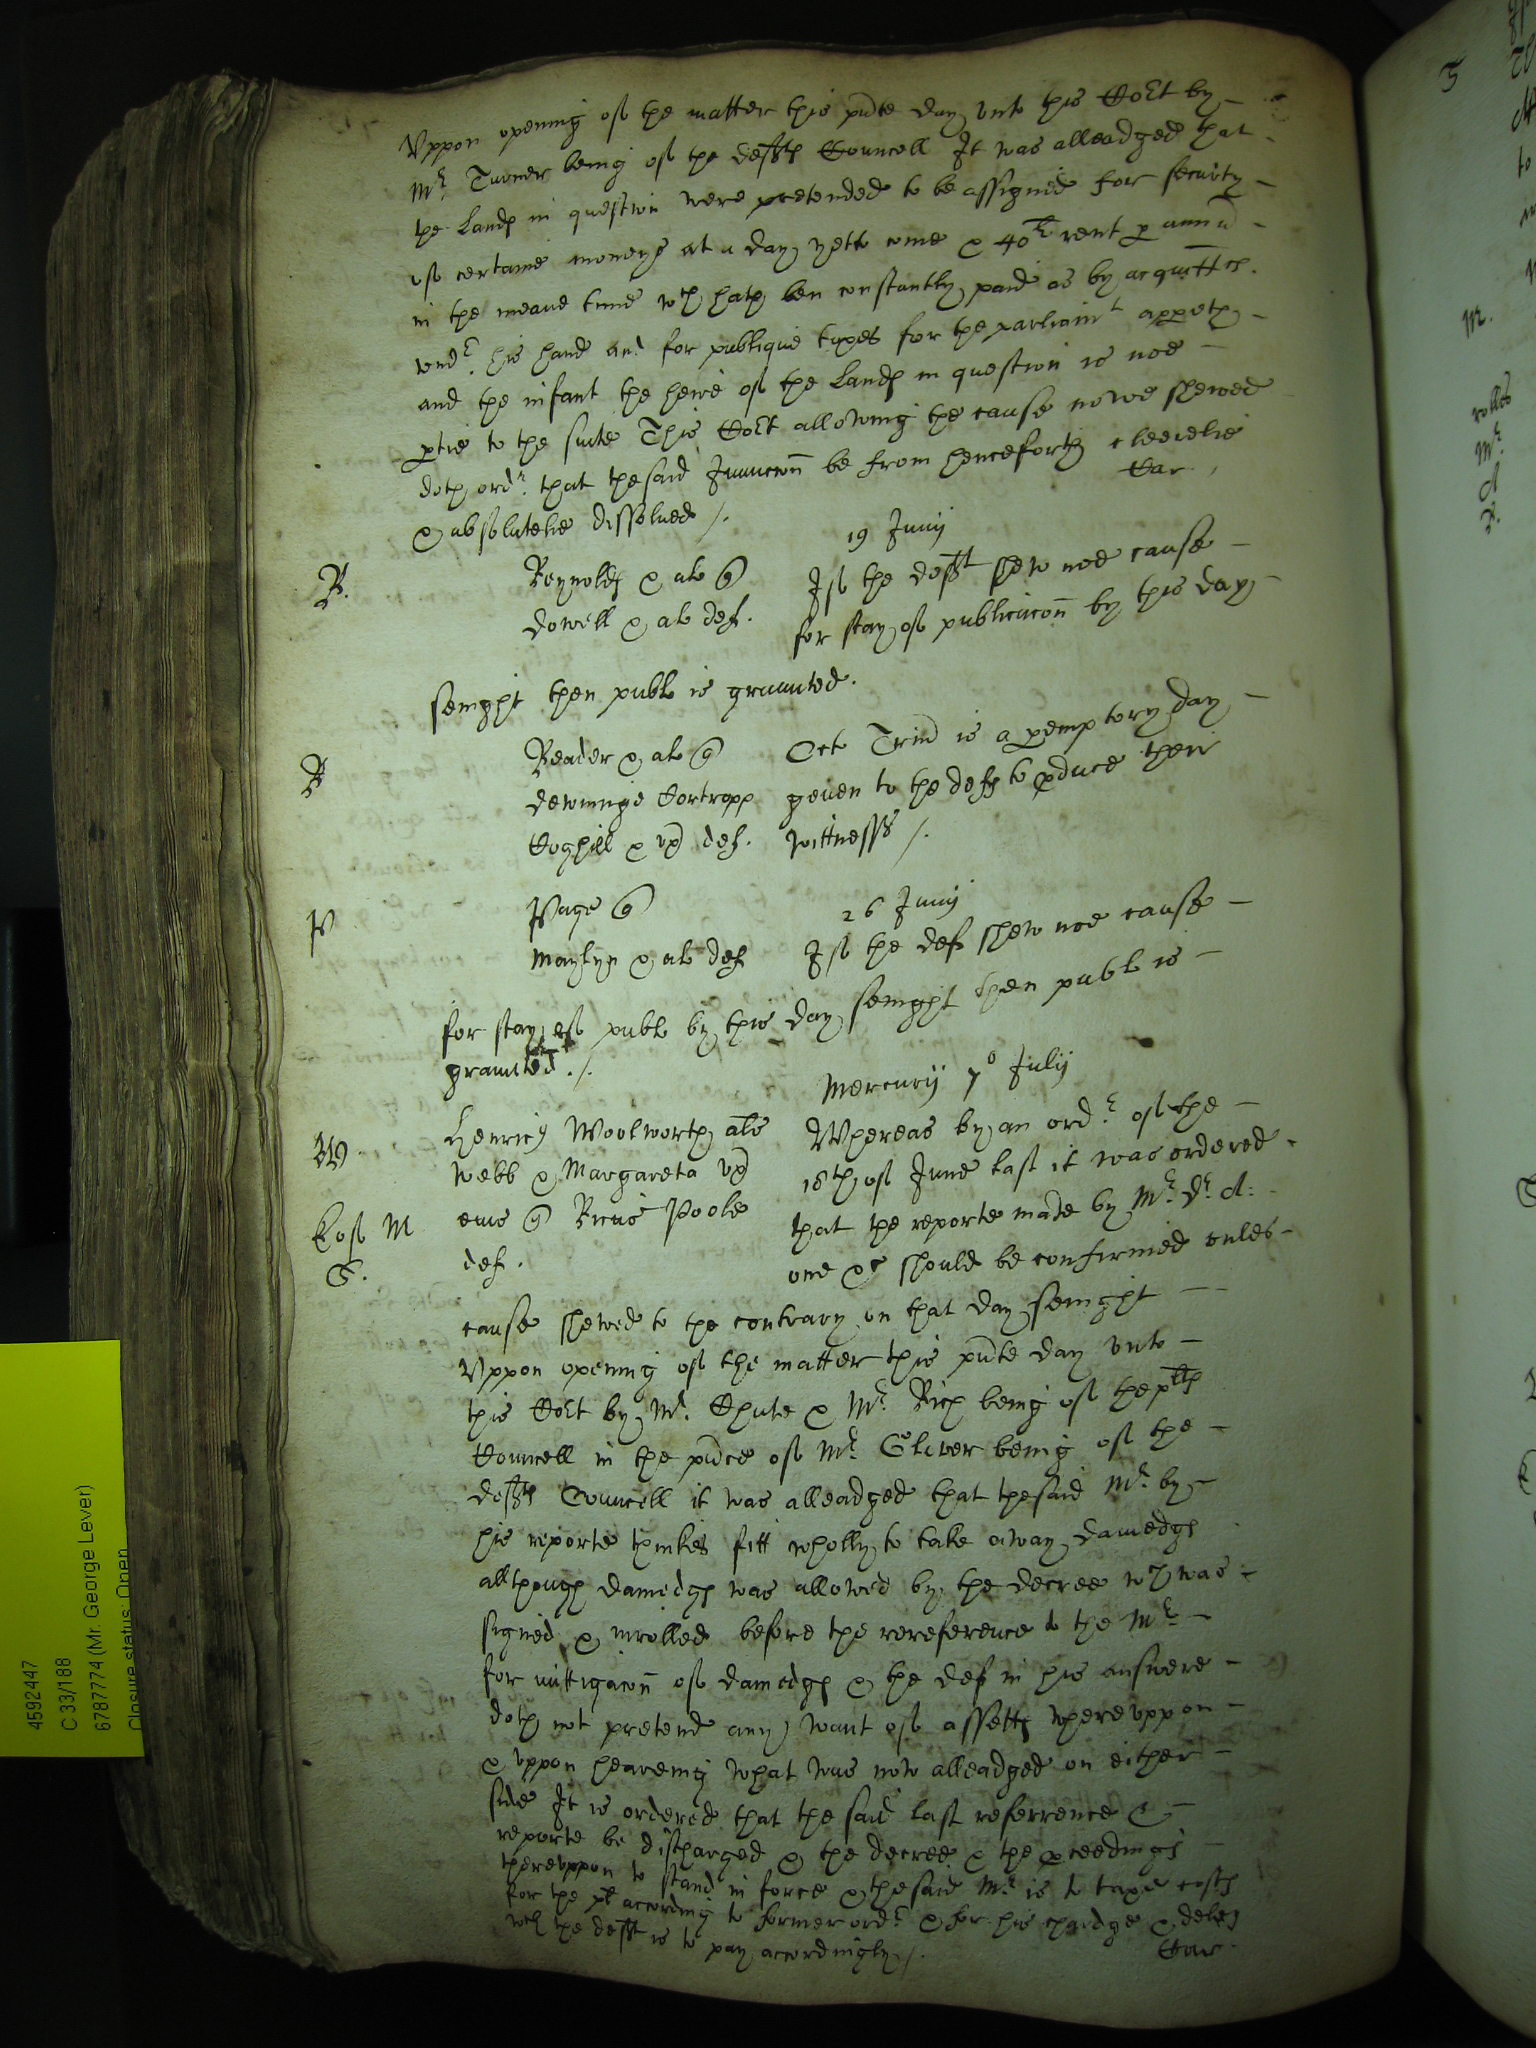 Uppon opening of the matter this pñte day unto this Cort by
Mr. Turner being of the defts Councell It was alleadged that
the Lands in question were pretended to be assigned for security
of certaine moneys at a day yett to come & 40li rent p annũ
in the meane time wch hath ben constantly paid as by acquittes.
undr. his hand and for publique taxes for the parliamt appeth
and the infant the heire of the Lands in question is noe
ptie to the suite This Cort allowing the cause nowe shewed
doth ordr. that the said Iniunccon be from henceforth cleerelie
& absolutelie dissolued /. Car
19 Junij
R. Reynolds & als q If the deft shew noe cause
Dowell & als def. for stay of publicacon by this day
senight then publ is graunted.
R Reader & als q Octo Trin is a pemptory day
Dewninge Cortropp geuen to the defts to pduce their
Coghill & ux def. wittnesses /.
26 Junij
P Page q If the def shew noe cause
Maylyn & als def
for stay of publ by this day senight then publ is
graunted ./.
Mercurij 7o Julij
W. Henricq Woolworth als Whereas by an ordr. of the
Webb & Margareta ux 18th of June last it was ordered
M eius q Ricus Poole that the reporte made by Mr. Dr. A:
def. one &c should be confirmed unles
cause shewed to the contrary on that day senight
Uppon opening of the matter this pñte day unto
this Cort by Mr. Chute & Mr. Rich being of the plts
Councell in the pñce of Mr. Gliver being of the
defts Councell it was alleadged that the said Mr. by
his reporte thinkes fitt wholly to take away damedgs
allthough damedgs was allowed by the decree wch was
signed & inrolled before the rereference to the Mr.
for mittigacon of damedgs & the def in his answere
doth not pretend any want of assetts whereuppon
& uppon heareing what was now alleadged on either
side It is ordered that the said last referrence &
reporte be discharged & the decree & the pceedings
thereuppon to stand in force & the said Mr. is to taxe costs
for the pl according to former ordr. & for his chardge & deley
wch the deft is to pay accordingly /. Car.
4592447
C 33/188
6787774 (Mr. George Lever)
Closure status: Open